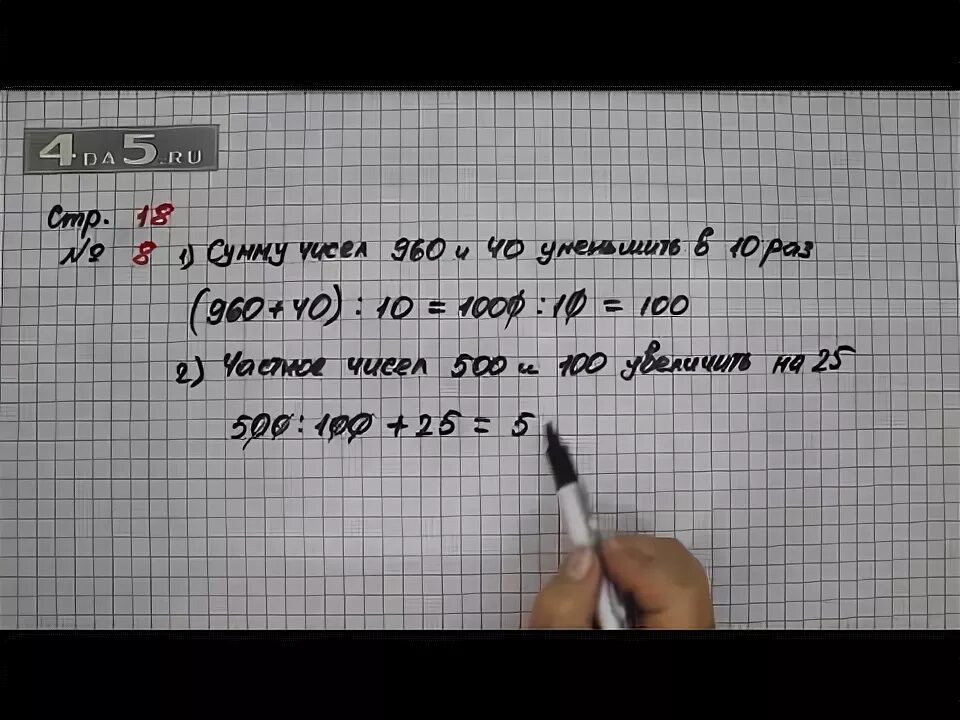 4DA5.RU
Стр. 18
№ 8 1) Сумму чисел 960 и 40 уменьшить в 10 раз
(960+40) : 10 = 1000 : 10 = 100
2) Частное чисел 500 и 100 увеличить на 25
500 : 100 + 25 = 5